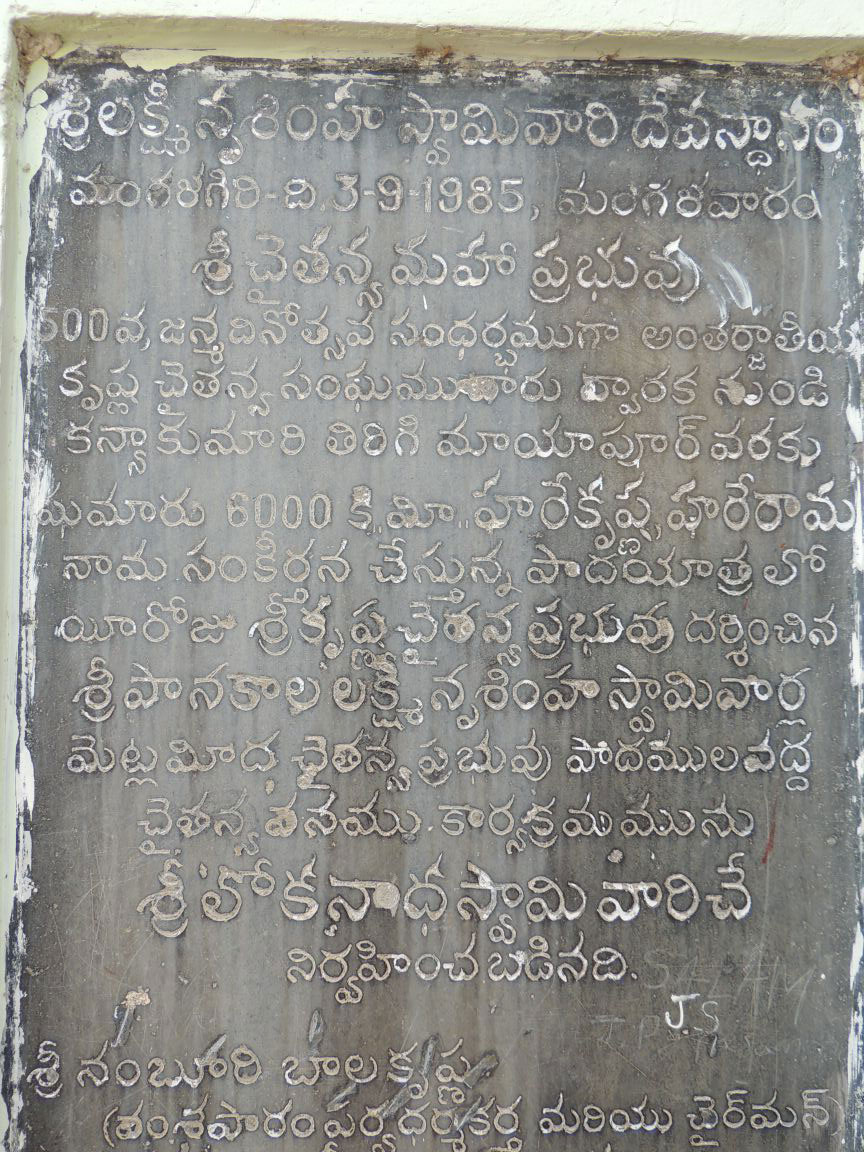 శ్రీలక్ష్మీ నృశింహ స్వామివారి దేవస్థానం
మంగళగిరి-ది.3-9-1985, మంగళవారం
శ్రీ చైతన్య మహా ప్రభువు
500వ జన్మదినోత్సవ సందర్భముగా అంతర్జాతీయ
కృష్ణ చైతన్య సంఘముదారు ద్వారక నుండి
కన్యాకుమారి తిరిగి మాయాపూర్ వరకు
షుమారు 6000 కి.మీ.. హరేకృష్ణ హరేరామ
నామ సంకీర్తన చేస్తున్న పాదయాత్ర లో
యీరోజు శ్రీకృష్ణ చైతన్య ప్రభువు దర్శించిన
శ్రీపానకాల లక్ష్మీ నృశింహ స్వామివార్ల
మెట్లమీద చైతన్య ప్రభువు పాదములవద్ద
చైతన్య తనము. కార్యక్రమమును
శ్రీలోకనాధ స్వామి వారిచే
నిర్వహించబడినది.
J.S
శ్రీ నంబూరి బాలకృష్ణ
(వంశపారంపర్యధర్మకర్త మరియు చైర్‌మన్)